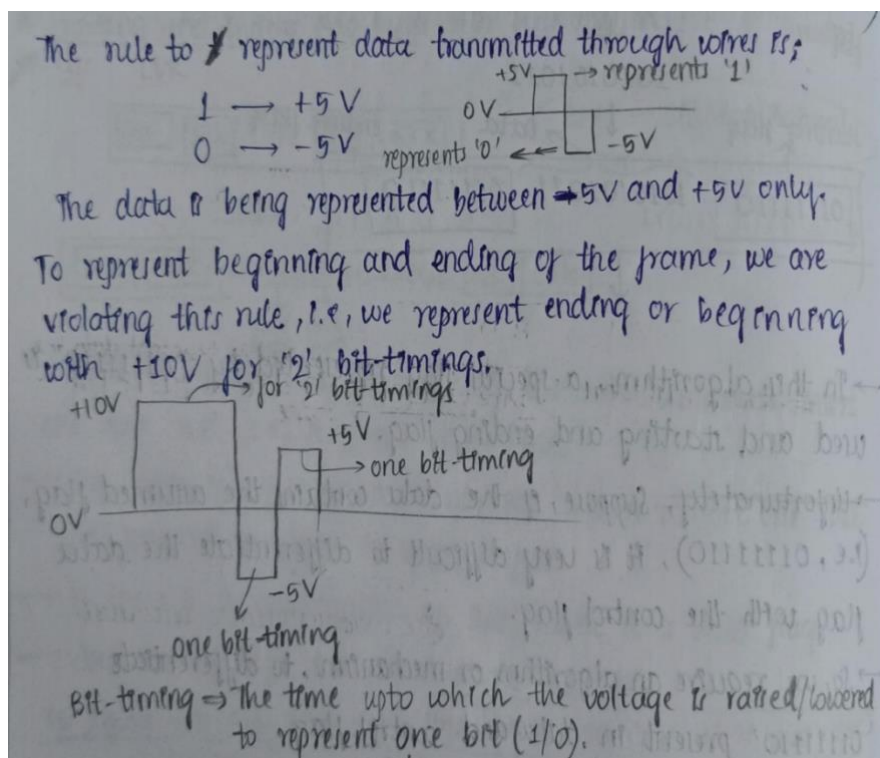 The rule to represent data transmitted through wires is;
1 → +5V
0 → -5V
+5V → represents '1'
0V
represents '0' ← -5V
The data is being represented between -5V and +5V only.
To represent beginning and ending of the frame, we are
violating this rule, i.e, we represent ending or beginning
with +10V for '2' bit-timings.
+10V → for '2' bit timings
+5V
→ one bit-timing
0V
-5V
one bit-timing
Bit-timing ⇒ The time upto which the voltage is raised/lowered
to represent one bit (1/0).